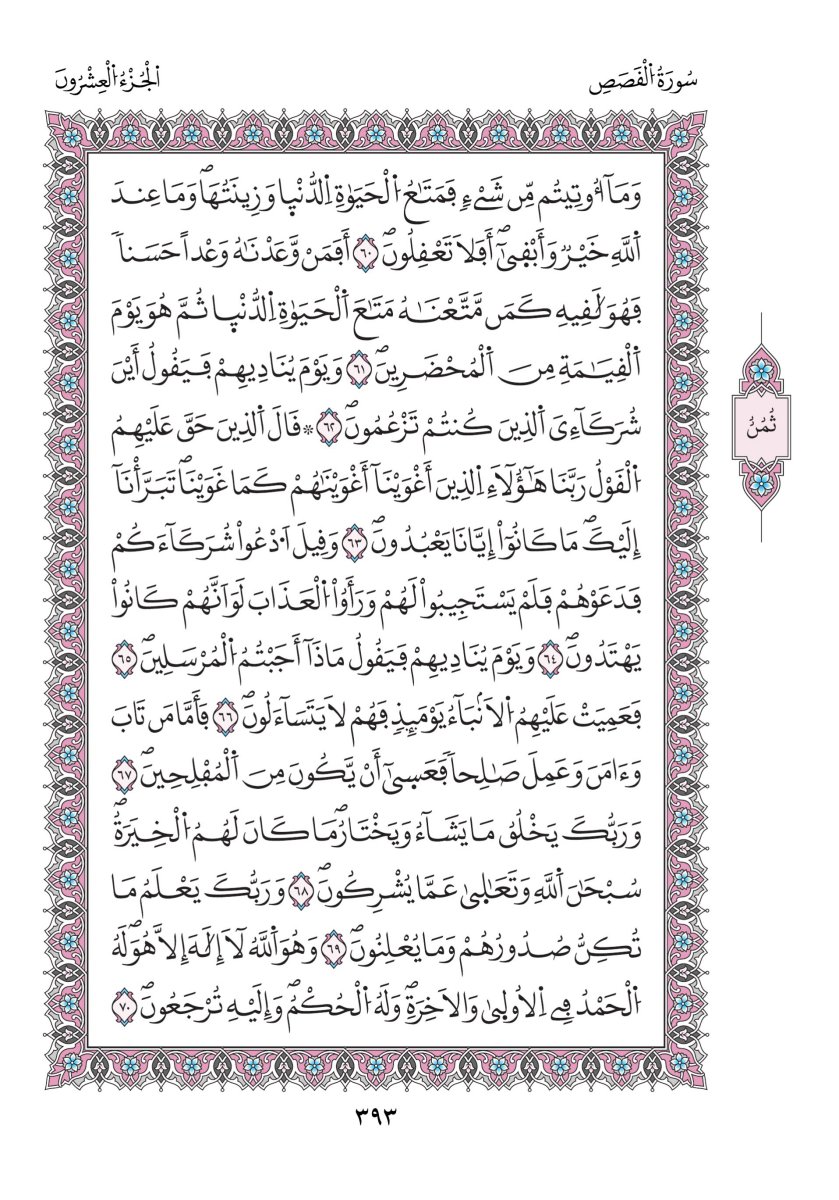 سُورَةُ الْقَصَصِ
الْجُزْءُ الْعِشْرُونَ
وَمَآ أُوتِيتُم مِّن شَےْءٍ فَمَتَٰعُ اُ۬لْحَيَوٰةِ اِ۬لدُّنْي۪ا وَزِينَتُهَاۖ وَمَا عِندَ
اَ۬للَّهِ خَيْرٞ وَأَبْق۪ىٰٓۖ أَفَلَا تَعْقِلُونَۖ ٦٠ أَفَمَنْ وَّعَدْنَٰهُ وَعْداً حَسَناٗ
فَهُوَ لَٰقِيهِ كَمَن مَّتَّعْنَٰهُ مَتَٰعَ اَ۬لْحَيَوٰةِ اِ۬لدُّنْي۪ا ثُمَّ هُوَ يَوْمَ
اَ۬لْقِيَٰمَةِ مِنَ اَ۬لْمُحْضَرِينَۖ ٦١ وَيَوْمَ يُنَادِيهِمْ فَيَقُولُ أَيْنَ
شُرَكَآءِيَ اَ۬لذِينَ كُنتُمْ تَزْعُمُونَۖ ٦٢ ۞ قَالَ اَ۬لذِينَ حَقَّ عَلَيْهِمُ
اُ۬لْقَوْلُ رَبَّنَا هَٰٓؤُلَآءِ اِ۬لذِينَ أَغْوَيْنَآ أَغْوَيْنَٰهُمْ كَمَا غَوَيْنَاۖ تَبَرَّأْنَآ
إِلَيْكَۖ مَا كَانُوٓاْ إِيَّانَا يَعْبُدُونَۖ ٦٣ وَقِيلَ اَ۟دْعُواْ شُرَكَآءَكُمْ
فَدَعَوْهُمْ فَلَمْ يَسْتَجِيبُواْ لَهُمْ وَرَأَوُاْ اُ۬لْعَذَابَ لَوَ اَنَّهُمْ كَانُواْ
يَهْتَدُونَۖ ٦٤ وَيَوْمَ يُنَادِيهِمْ فَيَقُولُ مَاذَآ أَجَبْتُمُ اُ۬لْمُرْسَلِينَۖ ٦٥
فَعَمِيَتْ عَلَيْهِمُ اُ۬لَانۢبَآءُ يَوْمَئِذٖ فَهُمْ لَا يَتَسَآءَلُونَۖ ٦٦ فَأَمَّا مَن تَابَ
وَءَامَنَ وَعَمِلَ صَٰلِحاٗ فَعَس۪ىٰٓ أَنْ يَّكُونَ مِنَ اَ۬لْمُفْلِحِينَۖ ٦٧
وَرَبُّكَ يَخْلُقُ مَا يَشَآءُ وَيَخْتَارُۖ مَا كَانَ لَهُمُ اُ۬لْخِيَرَةُۖ
سُبْحَٰنَ اَ۬للَّهِ وَتَعَٰل۪ىٰ عَمَّا يُشْرِكُونَۖ ٦٨ وَرَبُّكَ يَعْلَمُ مَا
تُكِنُّ صُدُورُهُمْ وَمَا يُعْلِنُونَۖ ٦٩ وَهُوَ اَ۬للَّهُ لَآ إِلَٰهَ إِلَّا هُوَۖ لَهُ
اُ۬لْحَمْدُ فِے اِ۬لُاول۪ىٰ وَالَاخِرَةِۖ وَلَهُ اُ۬لْحُكْمُۖ وَإِلَيْهِ تُرْجَعُونَۖ ٧٠
ثُمُنُ
٣٩٣